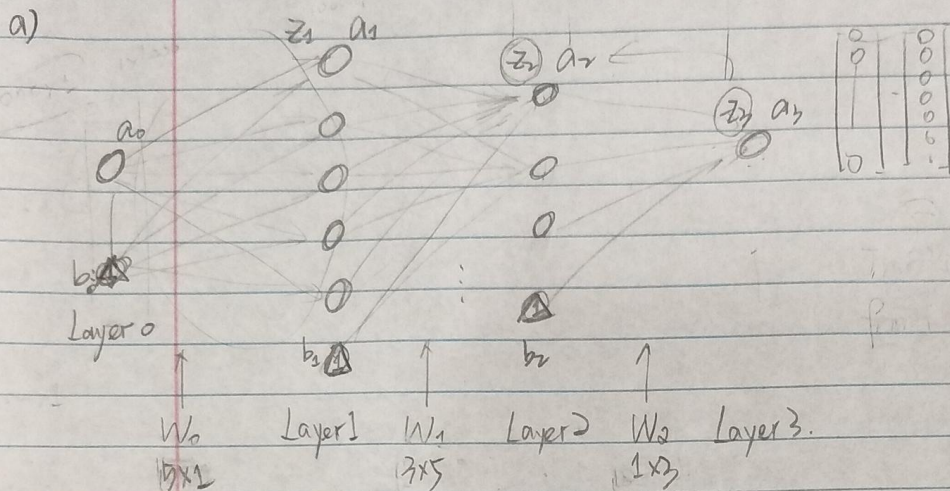 a)
z1 a1
z2 a2
z3 a3
a0
b0
Layer 0
b1
b2
W0
Layer1
W1
Layer2
W2
Layer3.
5x1
3x5
1x3